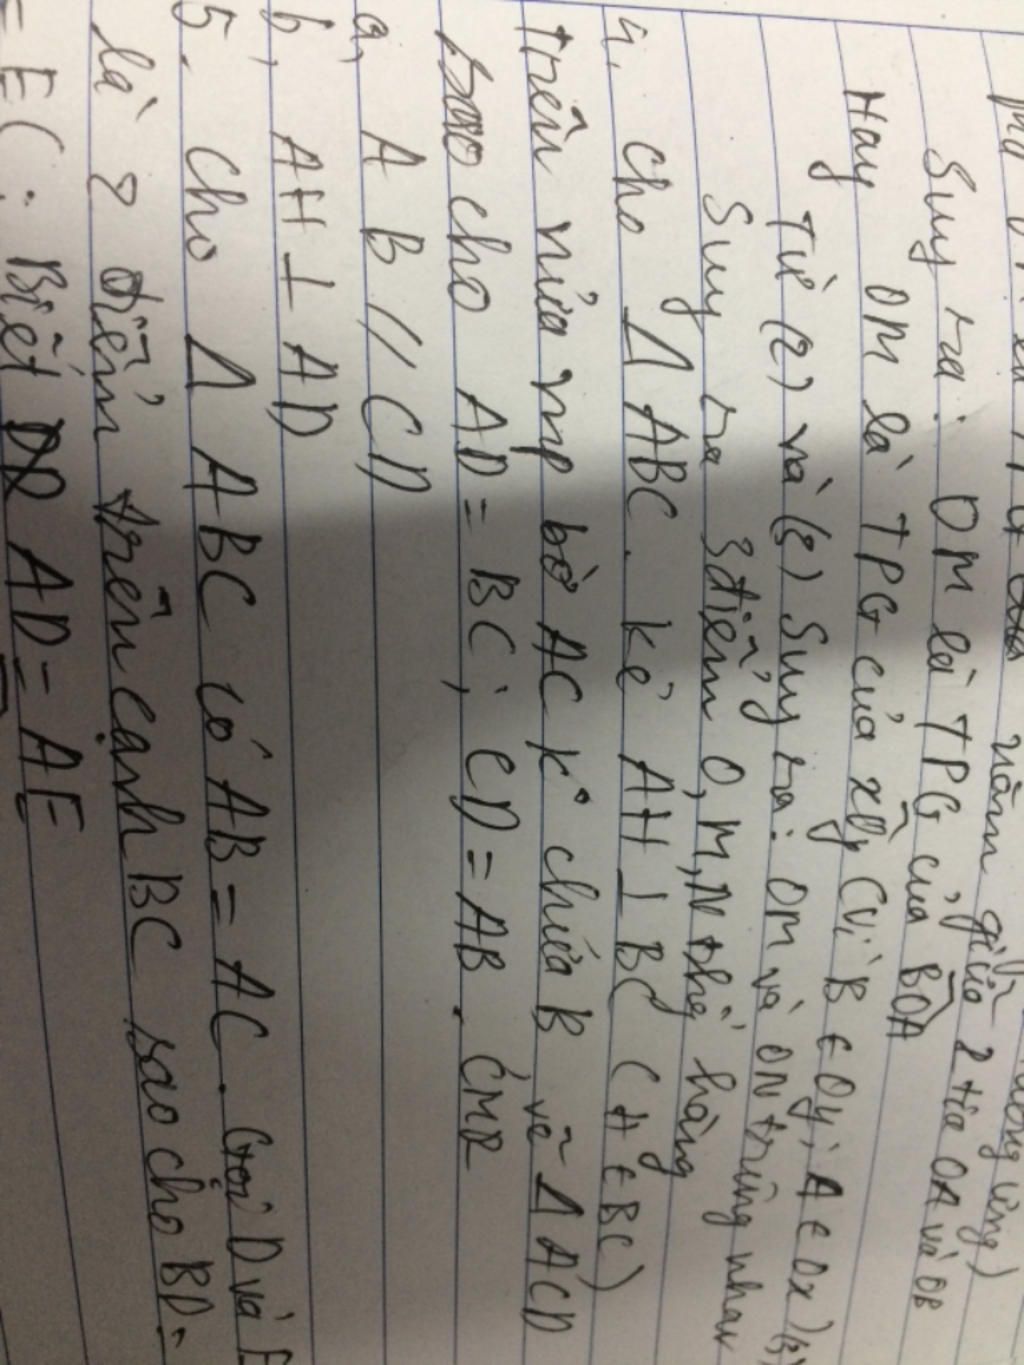 nằm giữa 2 tia OA và OB
Suy ra: OM là TPG của BOA
Hay OM là TPG của xOy (Vì B ∈ Oy; A ∈ Ox) (3)
Từ (2) và (3) Suy ra: OM và ON trùng nhau
Suy ra 3 điểm O, M, N thẳng hàng
4, Cho Δ ABC. kẻ AH ⊥ BC (H ∈ BC)
Trên nửa mp bờ AC k° chứa B vẽ Δ ACD
sao cho AD = BC; CD = AB. CMR
a, AB // CD
b, AH ⊥ AD
5. Cho Δ ABC có AB = AC. Gọi D và E
là 2 điểm trên cạnh BC sao cho BD =
= EC. Biết AD = AE